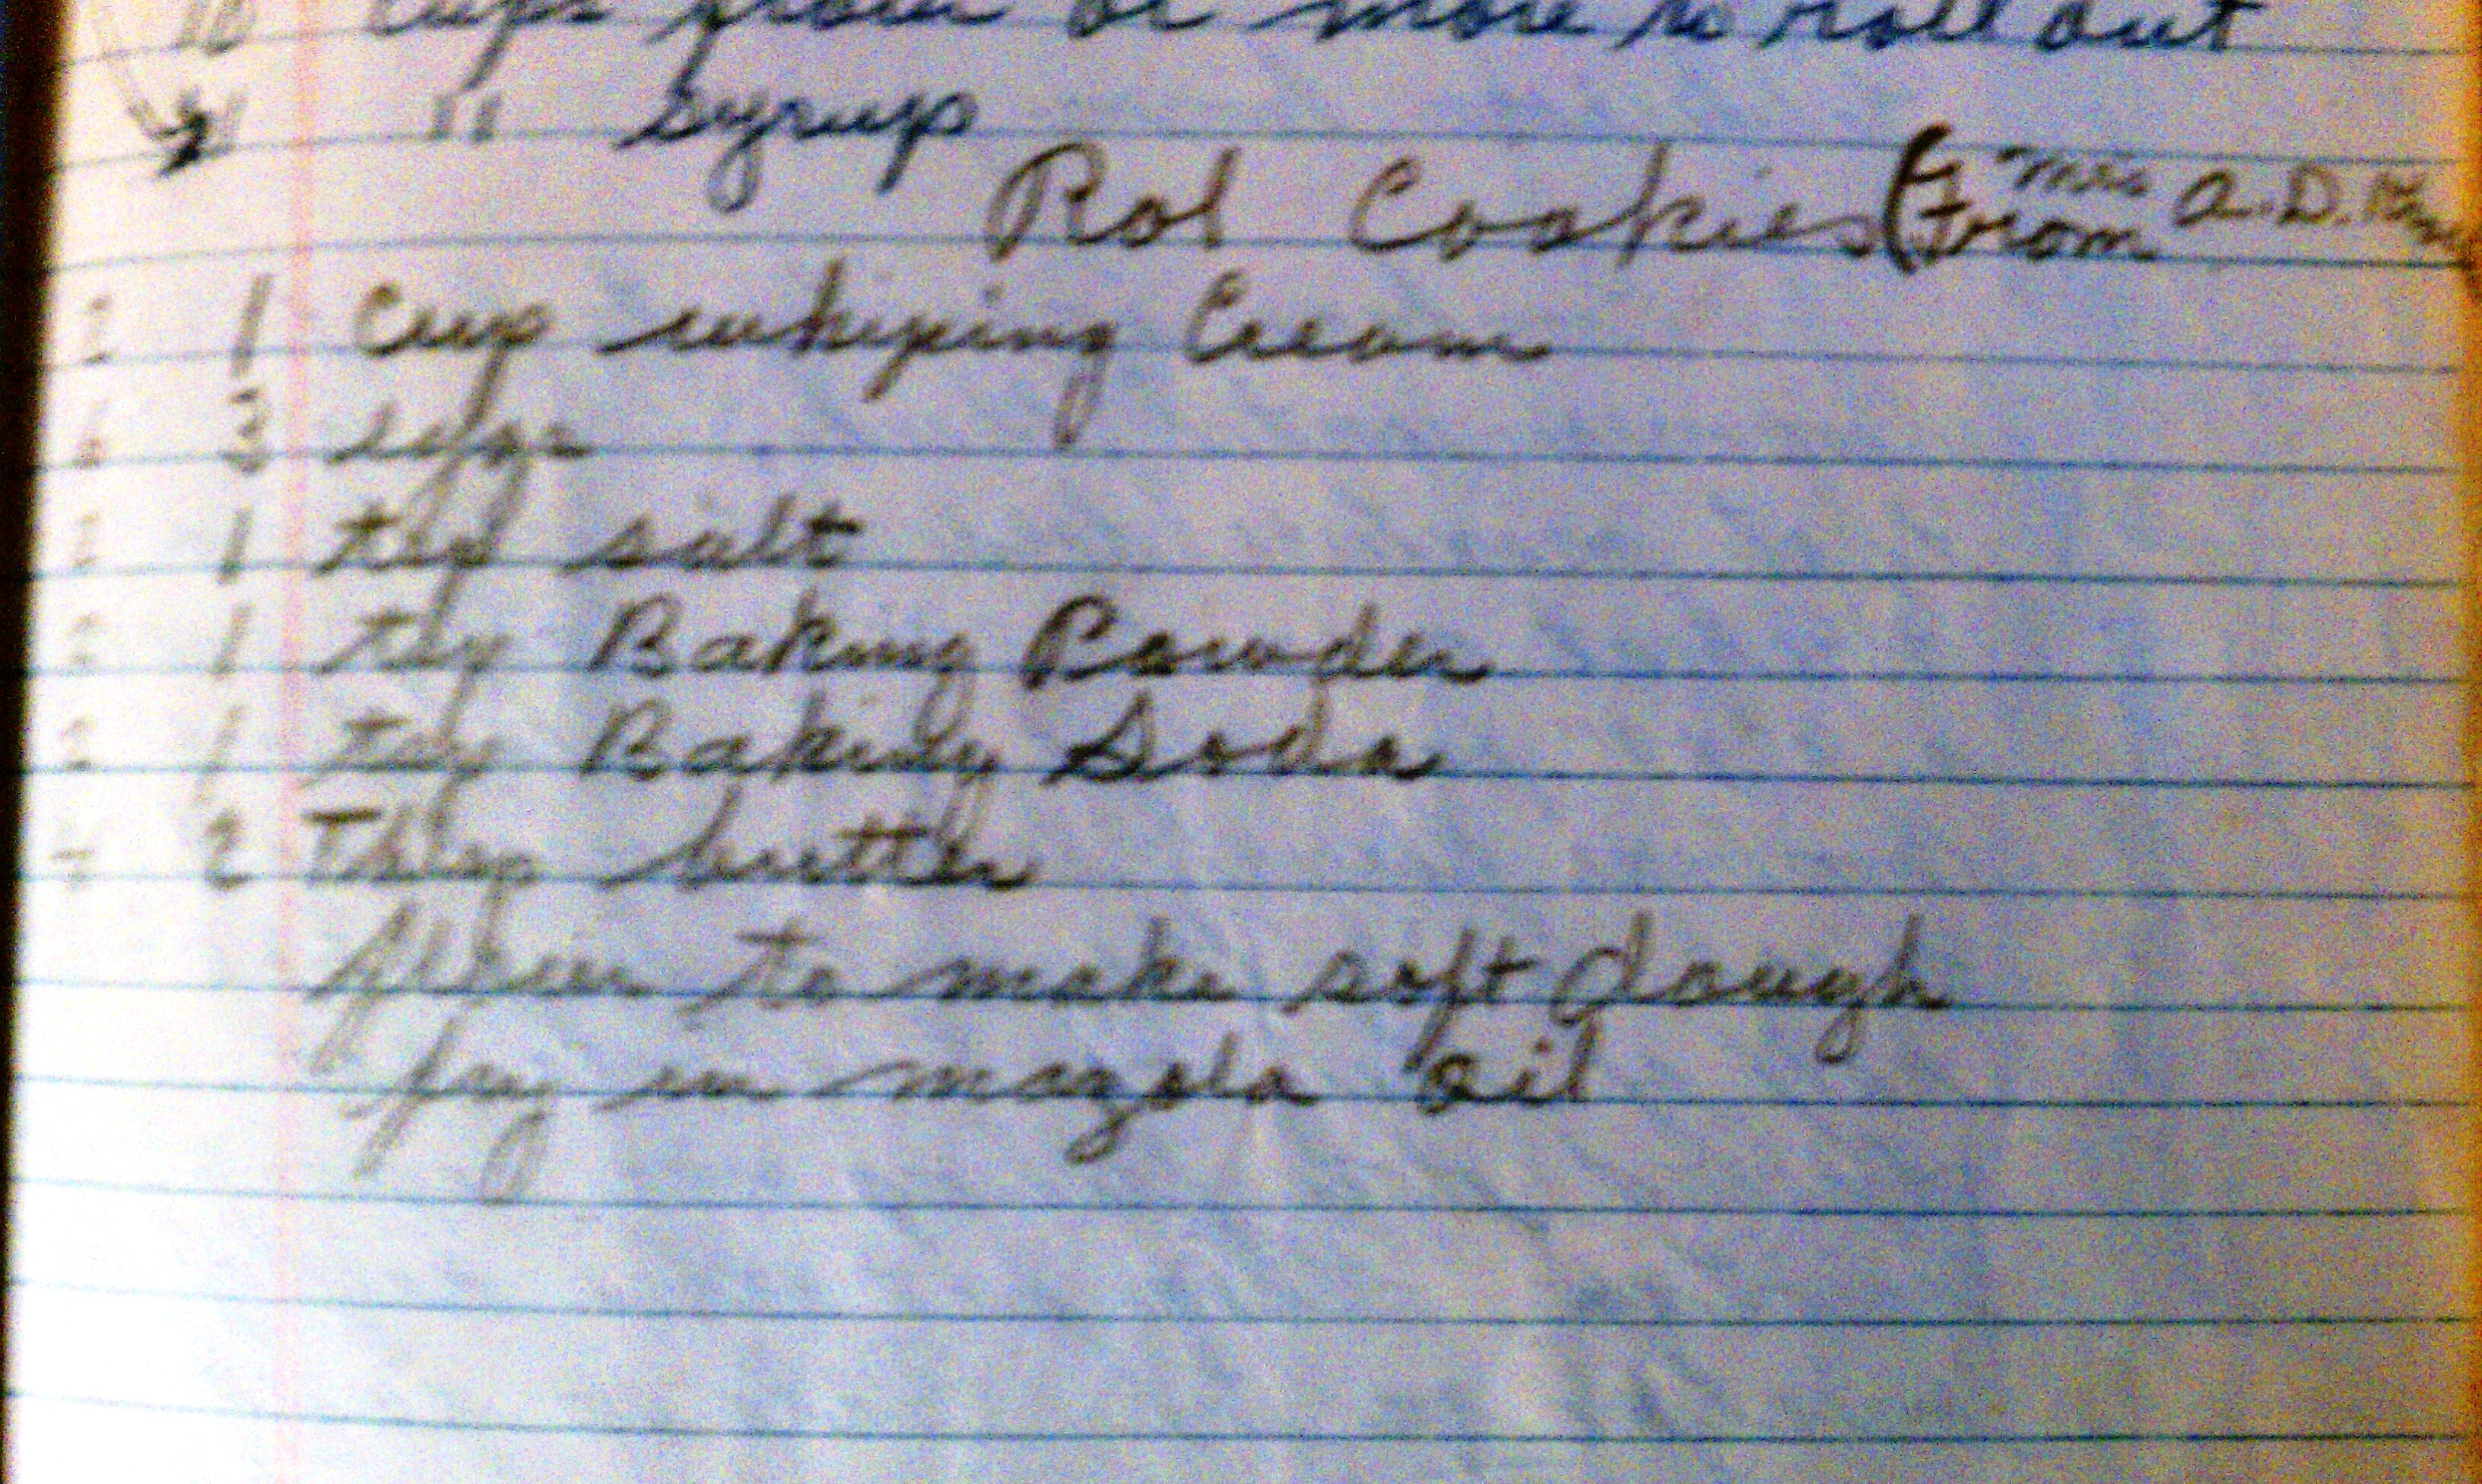 10 cups flour or more to roll out
" syrup
Rol Cookies (From Mrs A.D.
2 1 Cup whiping Cream
6 3 eggs
2 1 tsp salt
2 1 tsp Baking Powder
2 1 tsp Baking Soda
4 2 Tbsp butter
flour to make soft dough
fry in mazola oil